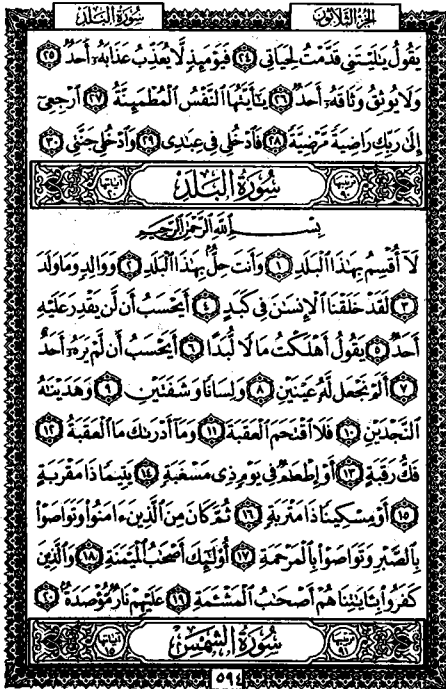 سُورَةُ الْبَلَدِ الجُزْءُ الثَّلَاثُونَ
يَقُولُ يَٰلَيْتَنِى قَدَّمْتُ لِحَيَاتِى ٢٤ فَيَوْمَئِذٍ لَّا يُعَذِّبُ عَذَابَهُۥٓ أَحَدٌ ٢٥
وَلَا يُوثِقُ وَثَاقَهُۥٓ أَحَدٌ ٢٦ يَٰٓأَيَّتُهَا ٱلنَّفْسُ ٱلْمُطْمَئِنَّةُ ٢٧ ٱرْجِعِىٓ
إِلَىٰ رَبِّكِ رَاضِيَةً مَّرْضِيَّةً ٢٨ فَٱدْخُلِى فِى عِبَٰدِى ٢٩ وَٱدْخُلِى جَنَّتِى ٣٠
ترتيبها ٩٠ سُورَةُ الْبَلَدِ آياتها ٢٠
بِسْمِ ٱللَّهِ ٱلرَّحْمَٰنِ ٱلرَّحِيمِ
لَآ أُقْسِمُ بِهَٰذَا ٱلْبَلَدِ ١ وَأَنتَ حِلٌّۢ بِهَٰذَا ٱلْبَلَدِ ٢ وَوَالِدٍ وَمَا وَلَدَ
٣ لَقَدْ خَلَقْنَا ٱلْإِنسَٰنَ فِى كَبَدٍ ٤ أَيَحْسَبُ أَن لَّن يَقْدِرَ عَلَيْهِ
أَحَدٌ ٥ يَقُولُ أَهْلَكْتُ مَالًا لُّبَدًا ٦ أَيَحْسَبُ أَن لَّمْ يَرَهُۥٓ أَحَدٌ
٧ أَلَمْ نَجْعَل لَّهُۥ عَيْنَيْنِ ٨ وَلِسَانًا وَشَفَتَيْنِ ٩ وَهَدَيْنَٰهُ
ٱلنَّجْدَيْنِ ١٠ فَلَا ٱقْتَحَمَ ٱلْعَقَبَةَ ١١ وَمَآ أَدْرَىٰكَ مَا ٱلْعَقَبَةُ ١٢
فَكُّ رَقَبَةٍ ١٣ أَوْ إِطْعَٰمٌ فِى يَوْمٍ ذِى مَسْغَبَةٍ ١٤ يَتِيمًا ذَا مَقْرَبَةٍ
١٥ أَوْ مِسْكِينًا ذَا مَتْرَبَةٍ ١٦ ثُمَّ كَانَ مِنَ ٱلَّذِينَ ءَامَنُوا۟ وَتَوَاصَوْا۟
بِٱلصَّبْرِ وَتَوَاصَوْا۟ بِٱلْمَرْحَمَةِ ١٧ أُو۟لَٰٓئِكَ أَصْحَٰبُ ٱلْمَيْمَنَةِ ١٨ وَٱلَّذِينَ
كَفَرُوا۟ بِـَٔايَٰتِنَا هُمْ أَصْحَٰبُ ٱلْمَشْـَٔمَةِ ١٩ عَلَيْهِمْ نَارٌ مُّؤْصَدَةٌۢ ٢٠
ترتيبها ٩١ سُورَةُ الشَّمْسِ آياتها ١٥
٥٩٤